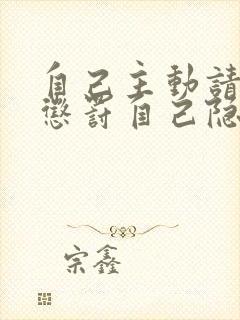 自己主動請
懲罰自己隐
宗鑫